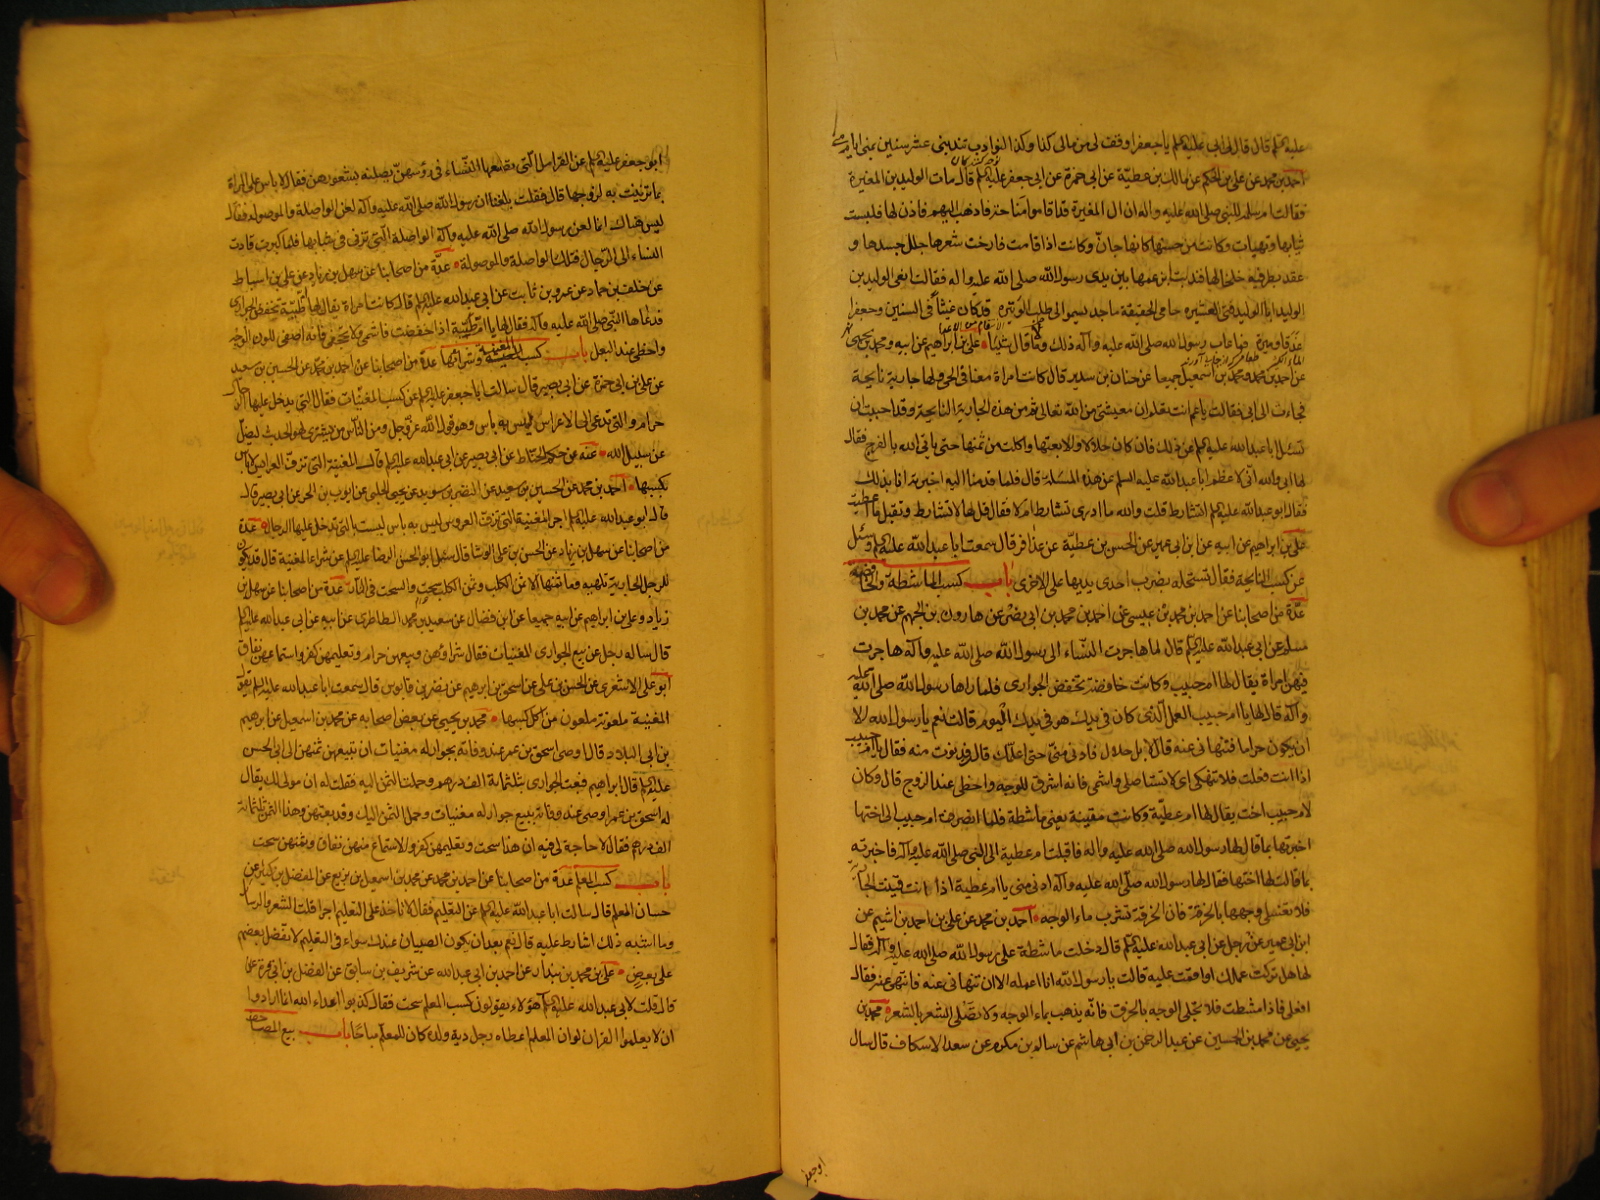 عليه السلم قال قال لي ابي عليه السلم يا جعفر اوقف لي من مالي كذا وكذا النوادب تندبني عشر سنين بمنى ايام منى
احمد بن محمد عن علي بن الحكم عن مالك بن عطية عن ابي حمزة عن ابي جعفر عليه السلم قال مات الوليد بن المغيرة
فقالت ام سلمه للنبي صلى الله عليه واله ان ال المغيرة قد اقاموا مناحة فاذهب اليهم فاذن لها فلبست
ثيابها وتهيات وكانت من حسنها كانها جان وكانت اذا قامت فارخت شعرها جلل جسدها و
عقد بطرفيه خلخالها فندبت ابن عمها بين يدى رسول الله صلى الله عليه واله فقالت انعى الوليد بن
الوليد ابا الوليد فتى العشيره حامى الحقيقة ماجد يسمو الى طلب الوتيره قد كان غيثا فى السنين وجعفرا
غدقا وميرة فما عاب رسول الله صلى الله عليه وآله ذلك ولا قال شيئا علي بن ابراهيم عن ابيه ومحمد بن يحيى
عن احمد بن محمد ومحمد بن اسمعيل جميعا عن حنان بن سدير قال كانت امراة معنا في الحي ولها جارية نايحة
فجاءت الى ابى فقالت يا عم انت تعلم ان معيشتى من الله تعالى ثم من هذه الجارية النايحة وقد احببت ان
تسئل ابا عبد الله عليه السلم عن ذلك فان كان حلالا والا بعتها واكلت من ثمنها حتى ياتى الله بالفرج فقال
لها ابى والله انى لاعظم ابا عبد الله عليه السلم عن هذه المسئلة قال فلما قدمنا اليه اخبرته انا بذلك
فقال ابو عبد الله عليه السلم اتشارط قلت والله ما ادرى تشارط ام لا فقال قل لها لا تشارط وتقبل ما اعطيت
علي بن ابراهيم عن ابيه عن ابن ابى عمير عن الحسن بن عطية عن عذافر قال سمعت ابا عبد الله عليه السلم وسئل
عن كسب النايحة فقال تستحله بضرب احدى يديها على الاخرى باب كسب الماشطة والخافضة
عدة من اصحابنا عن احمد بن محمد بن عيسى عن احمد بن محمد بن ابى نصر عن هارون بن الجهم عن محمد بن
مسلم عن ابى عبد الله عليه السلم قال لما هاجرت النساء الى رسول الله صلى الله عليه وآله هاجرت
فيهن امراة يقال لها ام حبيب وكانت خافضة تخفض الجوارى فلما راها رسول الله صلى الله عليه
وآله قال لها يا ام حبيب العمل الذى كان فى يدك هو فى يدك اليوم قالت نعم يا رسول الله الا
ان يكون حراما فتنهانى عنه قال لا بل حلال فادنى منى حتى اعلمك قال فدنوت منه فقال يا ام حبيب
اذا انت فعلت فلا تنهكى اى لا تستاصلى واشمى فانه اشرق للوجه واحظى عند الزوج قال وكان
لام حبيب اخت يقال لها ام عطية وكانت مقينة يعنى ماشطة فلما انصرفت ام حبيب الى اختها
اخبرتها بما قال لها رسول الله صلى الله عليه واله فاقبلت ام عطية الى النبى صلى الله عليه وآله فاخبرته
بما قالت لها اختها فقال لها رسول الله صلى الله عليه وآله ادنى منى يا ام عطية اذا انت قينت الجارية
فلا تغسلى وجهها بالخرقة فان الخرقة تشرب ماء الوجه احمد بن محمد عن على بن احمد بن اشيم عن
ابن ابى عمير عن رجل عن ابى عبد الله عليه السلم قال دخلت ماشطة على رسول الله صلى الله عليه وآله فقال
لها هل تركت عملك او اقمت عليه قالت يا رسول الله انا اعمله الا ان تنهانى عنه فانتهى عنه فقال
افعلى فاذا مشطت فلا تجلى الوجه بالخرق فانه يذهب بماء الوجه ولا تصلى الشعر بالشعر محمد بن
يحيى عن محمد بن الحسين عن عبد الرحمن بن ابى هاشم عن سالم بن مكرم عن سعد الاسكاف قال سال
ابو جعفر
ابو جعفر عليه السلم عن القرامل التى تضعها النساء فى رؤسهن يصلنه بشعورهن فقال لا باس على المراة
بما تزينت به لزوجها قال فقلت بلغنا ان رسول الله صلى الله عليه وآله لعن الواصلة والموصوله فقال
ليس هناك انما لعن رسول الله صلى الله عليه وآله الواصلة التى تزنى فى شبابها فلما كبرت قادت
النساء الى الرجال فتلك الواصلة والموصولة عدة من اصحابنا عن سهل بن زياد عن على بن اسباط
عن خلف بن حماد عن عمرو بن ثابت عن ابى عبد الله عليه السلم قال كانت امراة يقال لها ام طيبة تخفض الجوارى
فدعاها النبى صلى الله عليه وآله فقال لها يا ام طيبة اذا خفضت فاشمى ولا تجحفى فانه اصفى للون الوجه
واحظى عند البعل باب كسب المغنية وشرائها عدة من اصحابنا عن احمد بن محمد عن الحسين بن سعيد
عن على بن ابى حمزة عن ابى بصير قال سالت ابا جعفر عليه السلم عن كسب المغنيات فقال التى يدخل عليها الرجال
حرام والتى تدعى الى الاعراس ليس به باس وهو قول الله عز وجل ومن الناس من يشترى لهو الحديث ليضل
عن سبيل الله عنه عن حكم الحناط عن ابى بصير عن ابى عبد الله عليه السلم قال المغنية التى تزف العرايس لا باس
بكسبها احمد بن محمد عن الحسين بن سعيد عن النضر بن سويد عن يحيى الحلبى عن ايوب بن الحر عن ابى بصير قال
قال ابو عبد الله عليه السلم اجر المغنية التى تزف العروس ليس به باس ليست بالتى تدخل عليها الرجال عدة
من اصحابنا عن سهل بن زياد عن الحسن بن على الوشا قال سئل ابو الحسن الرضا عليه السلم عن شراء المغنية قال قد يكون
للرجل الجارية تلهيه وما ثمنها الا ثمن الكلب وثمن الكلب سحت والسحت فى النار عدة من اصحابنا عن سهل بن
زياد وعلى بن ابراهيم عن ابيه جميعا عن ابن فضال عن سعيد بن محمد الطاطرى عن ابيه عن ابى عبد الله عليه السلم
قال ساله رجل عن بيع الجوارى المغنيات فقال شراؤهن وبيعهن حرام وتعليمهن كفر واستماعهن نفاق
ابو على الاشعرى عن الحسن بن على عن اسحق بن ابراهيم عن نضر بن قابوس قال سمعت ابا عبد الله عليه السلم يقول
المغنية ملعونة ملعون من اكل كسبها محمد بن يحيى عن بعض اصحابه عن محمد بن اسمعيل عن ابراهيم
بن ابى البلاد قال اوصى اسحق بن عمر عند وفاته بجوار له مغنيات ان تبيعهن ثمنهن الى ابى الحسن
عليه السلم قال ابراهيم فبعت الجوارى بثلثمائة الف درهم وحملت الثمن اليه فقلت له ان مولى لك يقال
له اسحق بن عمر اوصى عند وفاته ببيع جوار له مغنيات وحمل الثمن اليك وقد بعتهن وهذا الثمن ثلثمائة
الف درهم فقال لا حاجة لى فيه ان هذا سحت وتعليمهن كفر والاستماع منهن نفاق وثمنهن سحت
باب كسب المعلم عدة من اصحابنا عن احمد بن محمد عن محمد بن اسمعيل بن بزيع عن الفضل بن كثير عن
حسان المعلم قال سالت ابا عبد الله عليه السلم عن التعليم فقال لا تاخذ على التعليم اجرا قلت الشعر والرسائل
وما اشبه ذلك اشارط عليه قال نعم بعد ان يكون الصبيان عندك سواء فى التعليم لا تفضل بعضهم
على بعض على بن محمد بن بندار عن احمد بن ابى عبد الله عن شريف بن سابق عن الفضل بن ابى قرة
قال قلت لابى عبد الله عليه السلم هؤلاء يقولون كسب المعلم سحت فقال كذبوا اعداء الله انما ارادوا
ان لا يعلموا القران لو ان المعلم اعطاه رجل دية ولده كان للمعلم مباحا باب بيع المصاحف